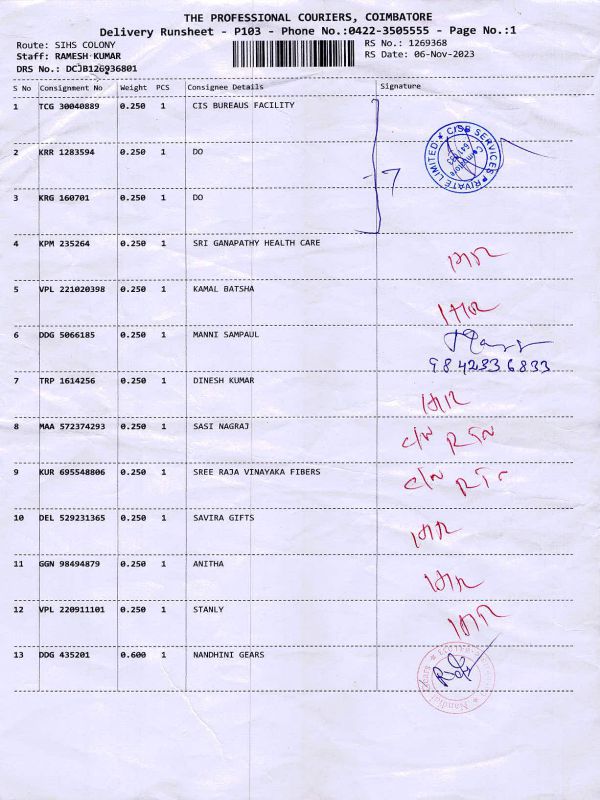 THE PROFESSIONAL COURIERS, COIMBATORE
Delivery Runsheet - P103 - Phone No.:0422-3505555 - Page No.:1
Route: SIHS COLONY
RS No.: 1269368
Staff: RAMESH KUMAR
RS Date: 06-Nov-2023
DRS No.: DCJB126936801
S No Consignment No Weight PCS Consignee Details Signature
1 TCG 30040889 0.250 1 CIS BUREAUS FACILITY
SERVICES PRIVATE LIMITED
Coimbatore
2 KRR 1283594 0.250 1 DO
7
3 KRG 160701 0.250 1 DO
4 KPM 235264 0.250 1 SRI GANAPATHY HEALTH CARE
5 VPL 221020398 0.250 1 KAMAL BATSHA
6 DDG 5066185 0.250 1 MANNI SAMPAUL
9842336833
7 TRP 1614256 0.250 1 DINESH KUMAR
8 MAA 572374293 0.250 1 SASI NAGRAJ
9 KUR 695548806 0.250 1 SREE RAJA VINAYAKA FIBERS
10 DEL 529231365 0.250 1 SAVIRA GIFTS
11 GGN 98494879 0.250 1 ANITHA
12 VPL 220911101 0.250 1 STANLY
13 DDG 435201 0.600 1 NANDHINI GEARS